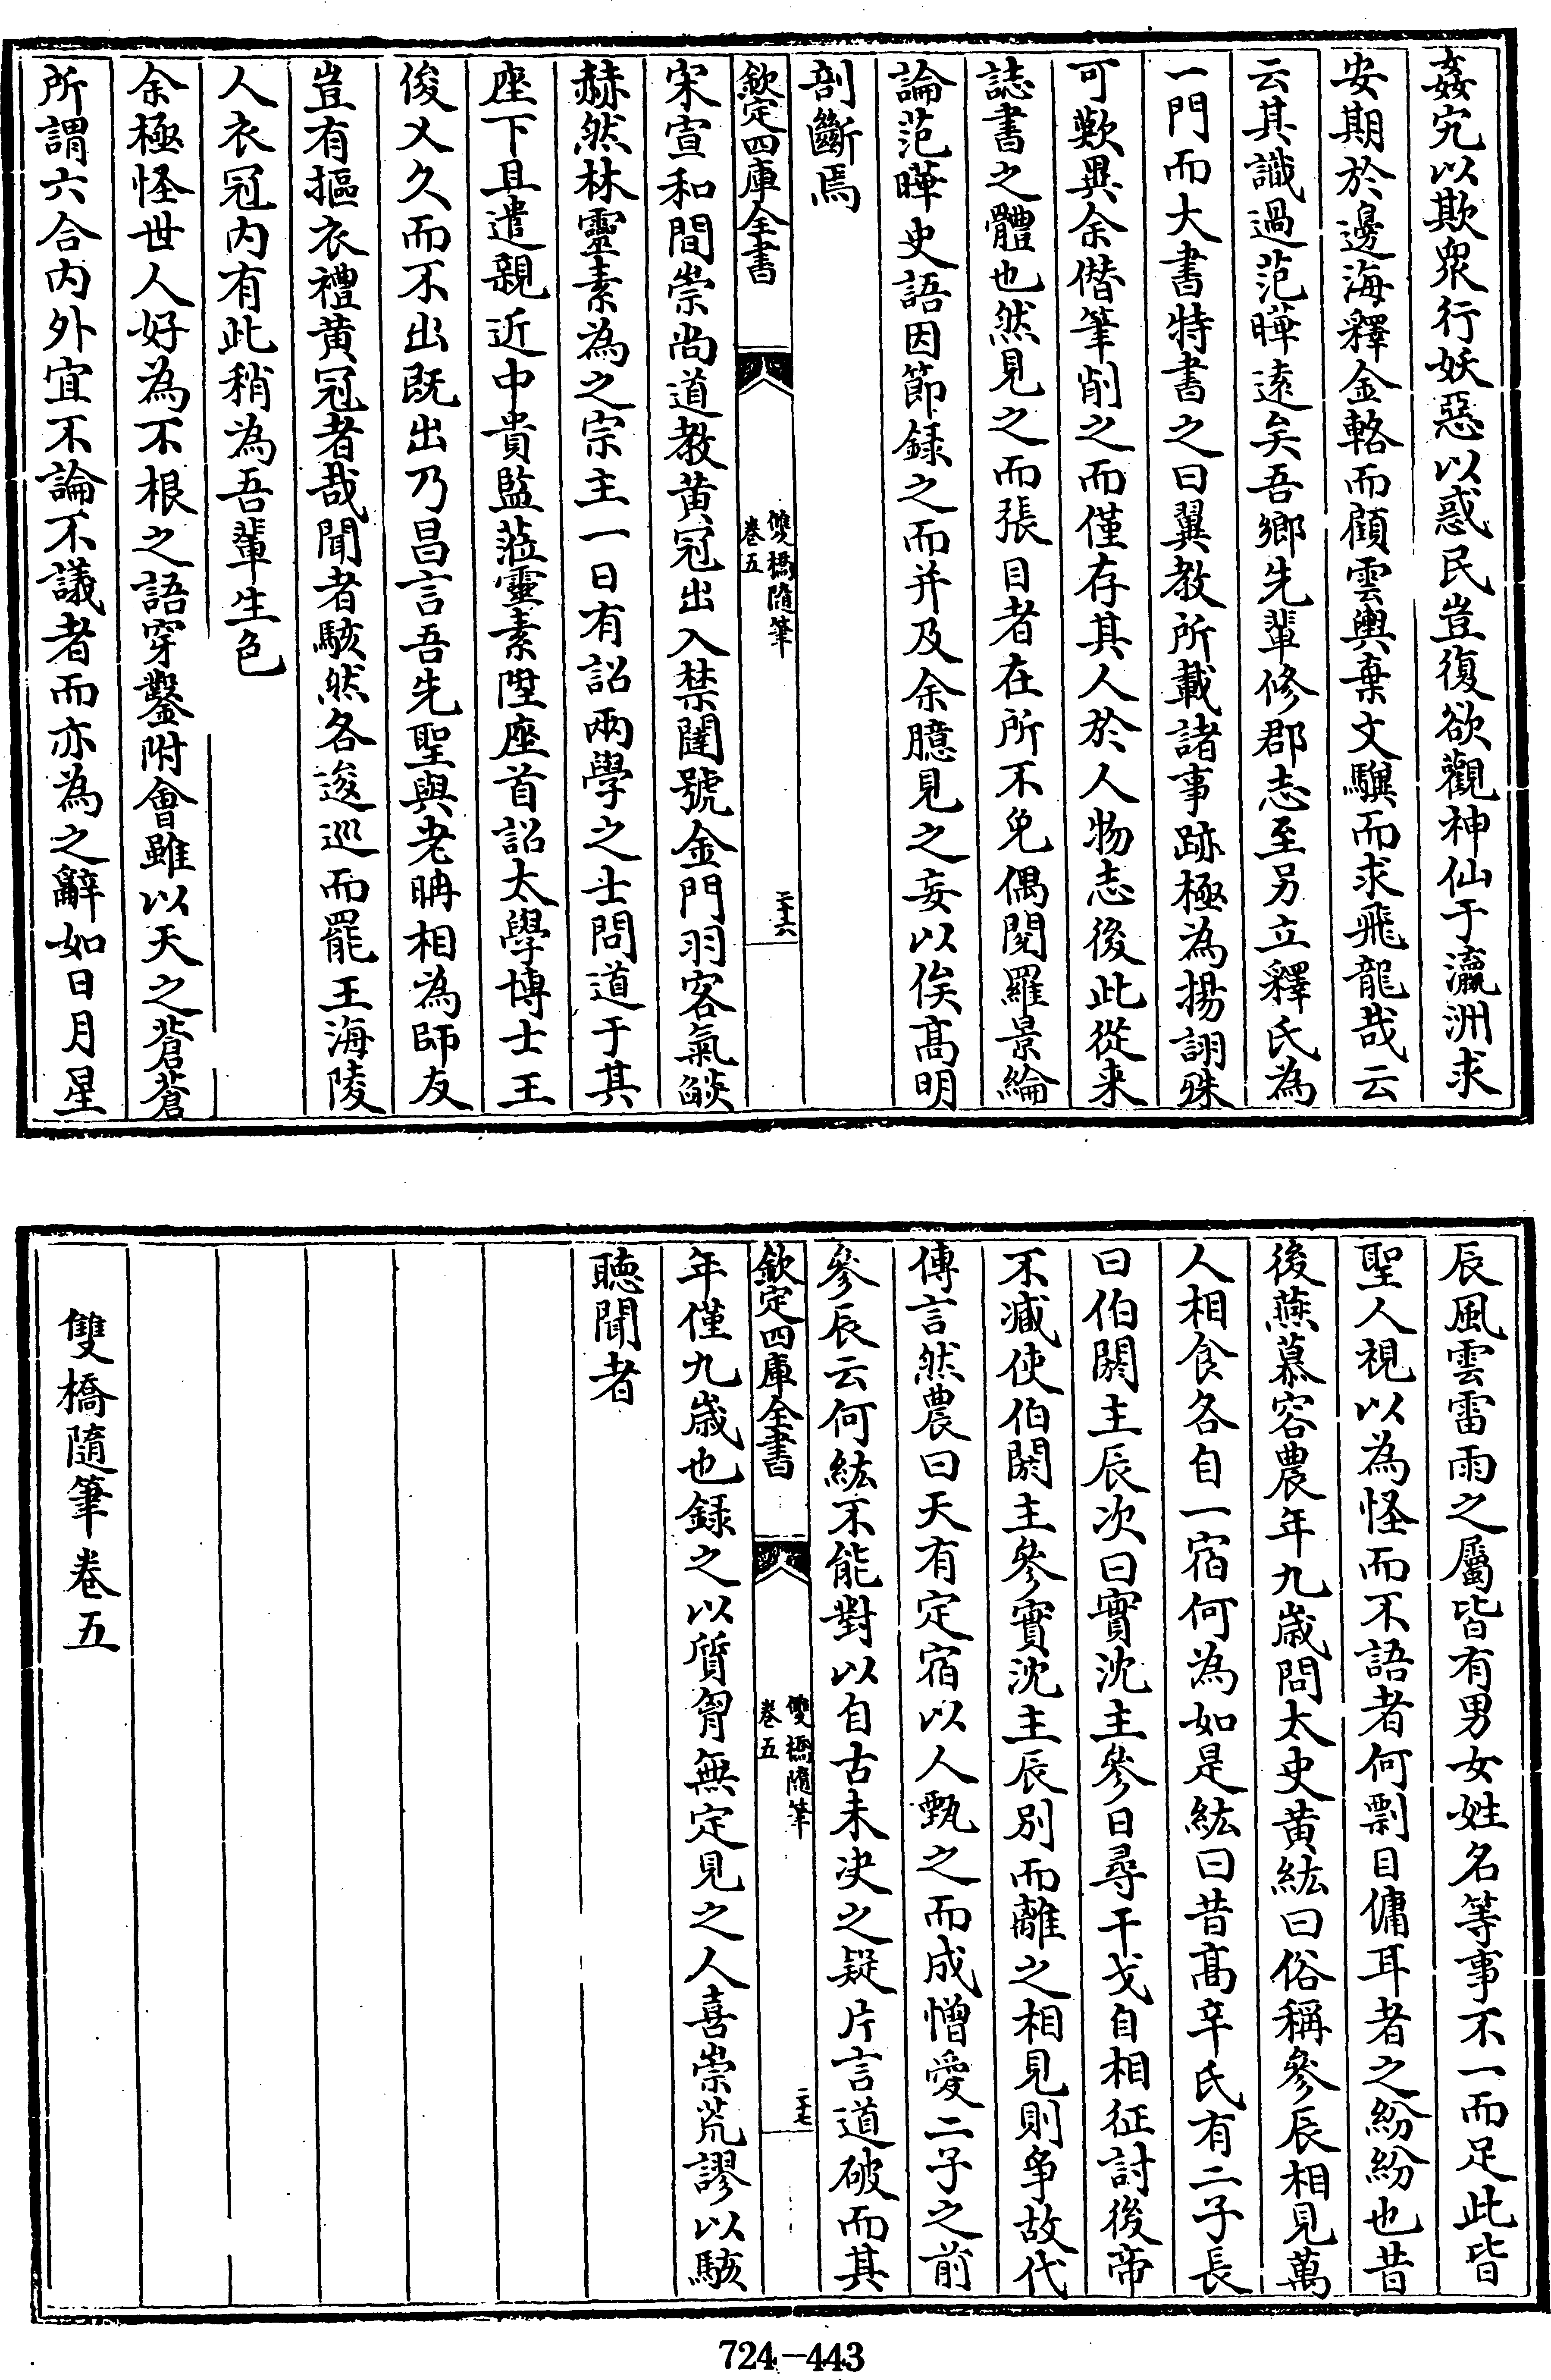 姦宄以欺衆行妖惡以惑民豈復欲觀神仙于瀛洲求
安期於邊海釋金輅而顧雲輿棄文驥而求飛龍哉云
云其識過范曄遠矣吾鄉先輩修郡志至另立釋氏為
一門而大書特書之曰翼教所載諸事跡極為揚詡殊
可歎異余僭筆削之而僅存其人於人物志後此從来
誌書之體也然見之而張目者在所不免偶閱羅景綸
論范曄史語因節録之而并及余臆見之妄以俟髙明
剖斷焉
欽定四庫全書
雙橋隨筆
卷五
二十六
宋宣和間崇尚道教黄冠出入禁闥號金門羽客氣燄
赫然林靈素為之宗主一日有詔兩學之士問道于其
座下且遣親近中貴監蒞靈素陞座首詔太學博士王
俊乂久而不出既出乃昌言吾先聖與老聃相為師友
豈有摳衣禮黄冠者哉聞者駭然各逡巡而罷王海陵
人衣冠内有此稍為吾輩生色
余極怪世人好為不根之語穿鑿附會雖以天之蒼蒼
所謂六合内外宜不論不議者而亦為之辭如日月星
辰風雲雷雨之屬皆有男女姓名等事不一而足此皆
聖人視以為怪而不語者何剽目傭耳者之紛紛也昔
後燕慕容農年九歲問太史黄紘曰俗稱參辰相見萬
人相食各自一宿何為如是紘曰昔髙辛氏有二子長
曰伯閼主辰次曰實沈主參日尋干戈自相征討後帝
不臧使伯閼主參實沈主辰别而離之相見則爭故代
傳言然農曰天有定宿以人甄之而成憎愛二子之前
參辰云何紘不能對以自古未决之疑片言道破而其
欽定四庫全書
雙橋隨筆
卷五
二十七
年僅九歲也録之以質胷無定見之人喜崇荒謬以駭
聽聞者
雙橋隨筆卷五
724-443